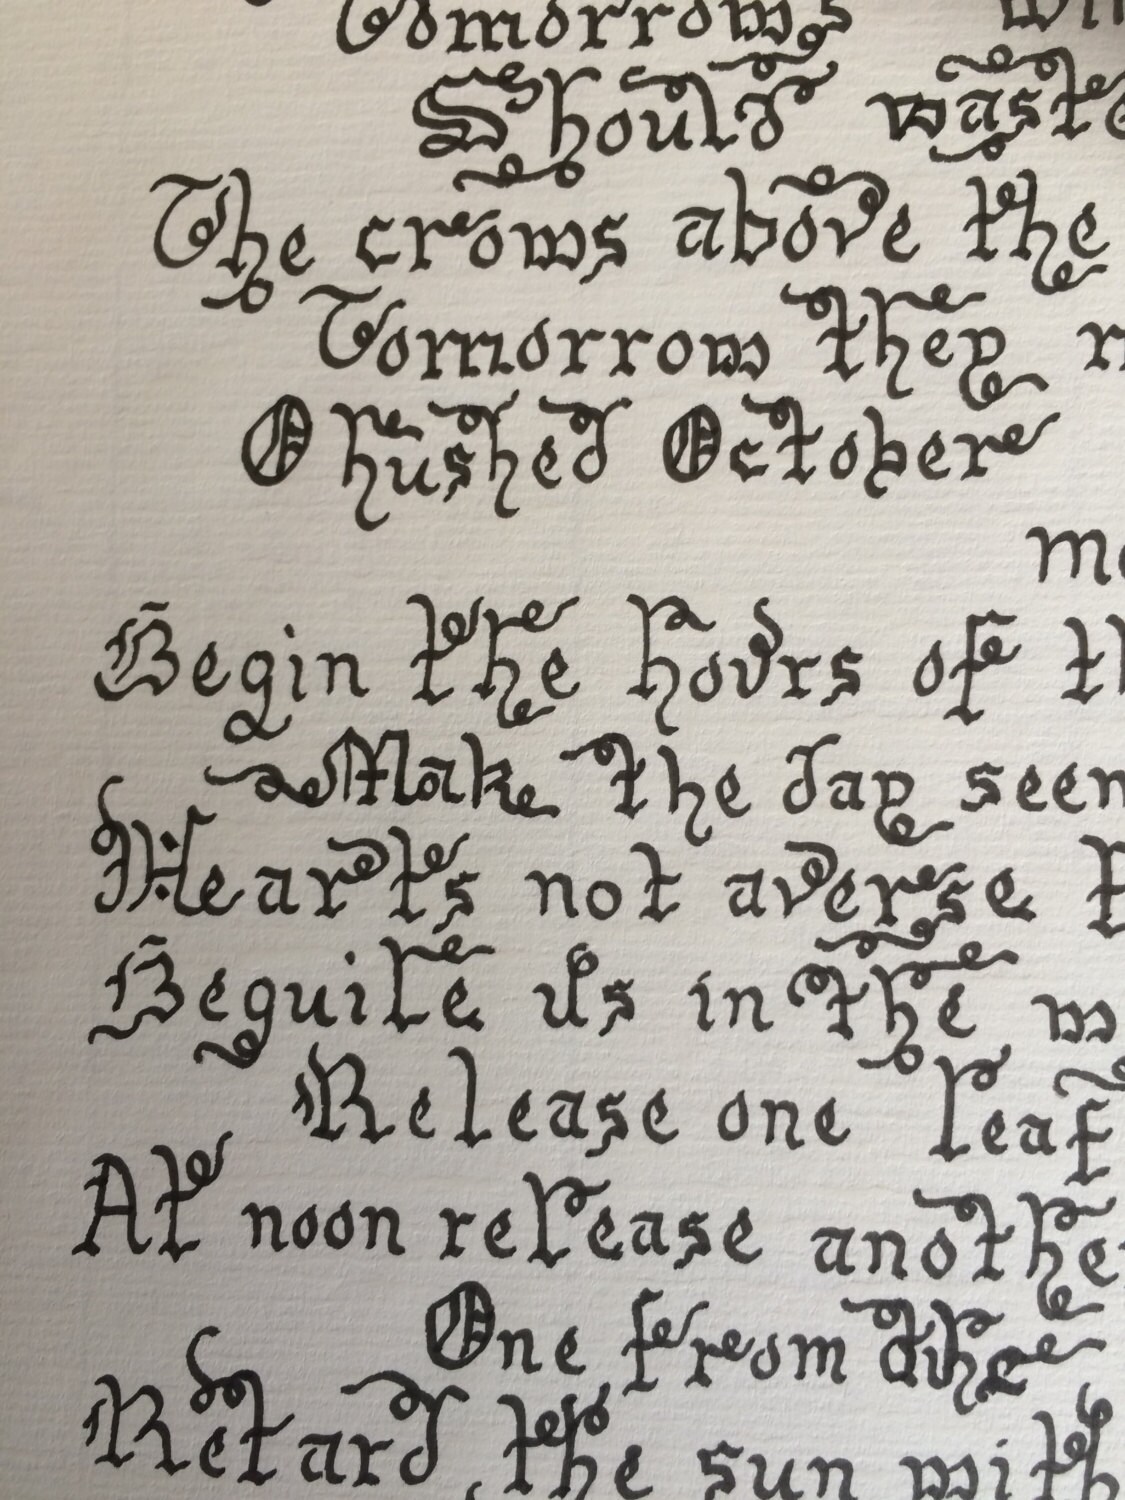 Tomorrows
Should waste
The crows above the
Tomorrow they
O hushed October
Begin the hours of
Make the day seem
Hearts not averse
Beguile us in the
Release one leaf
At noon release another
One from
Retard the sun with